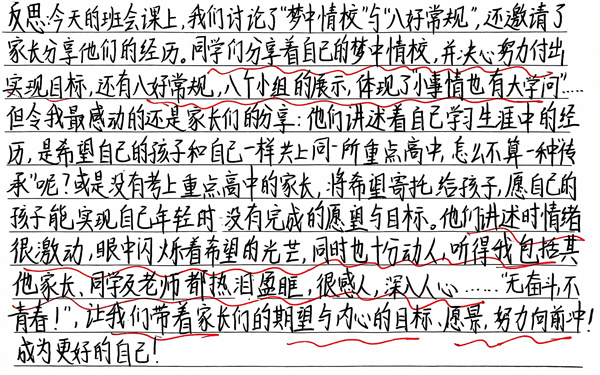 反思:今天的班会课上,我们讨论了“梦中情校”与“八好常规”,还邀请了
家长分享他们的经历。同学们分享着自己的梦中情校,并决心努力付出
实现目标,还有八好常规,八个小组的展示,体现了“小事情也有大学问”……
但令我最感动的还是家长们的分享:他们讲述着自己学习生涯中的经
历,是希望自己的孩子和自己一样共上同一所重点高中,怎么不算一种传
承”呢?或是没有考上重点高中的家长,将希望寄托给孩子,愿自己的
孩子能实现自己年轻时没有完成的愿望与目标。他们讲述时情绪
很激动,眼中闪烁着希望的光芒,同时也十分动人,听得我包括其
他家长、同学及老师都热泪盈眶,很感人,深入人心……“无奋斗,不
青春!”,让我们带着家长们的期望与内心的目标、愿景,努力向前冲!
成为更好的自己!